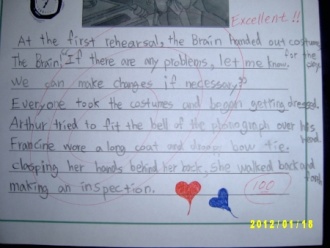 Excellent!!
At the first rehearsal, the Brain handed out costume
The Brain, "If there are any problems, let me know
for the
We can make changes if necessary."
Everyone took the costumes and began getting dressed.
Arthur tried to fit the bell of the phonograph over his
head
Francine wore a long coat and bow tie.
clasping her hands behind her back, She walked back and
making an inspection.
100
2012/01/16